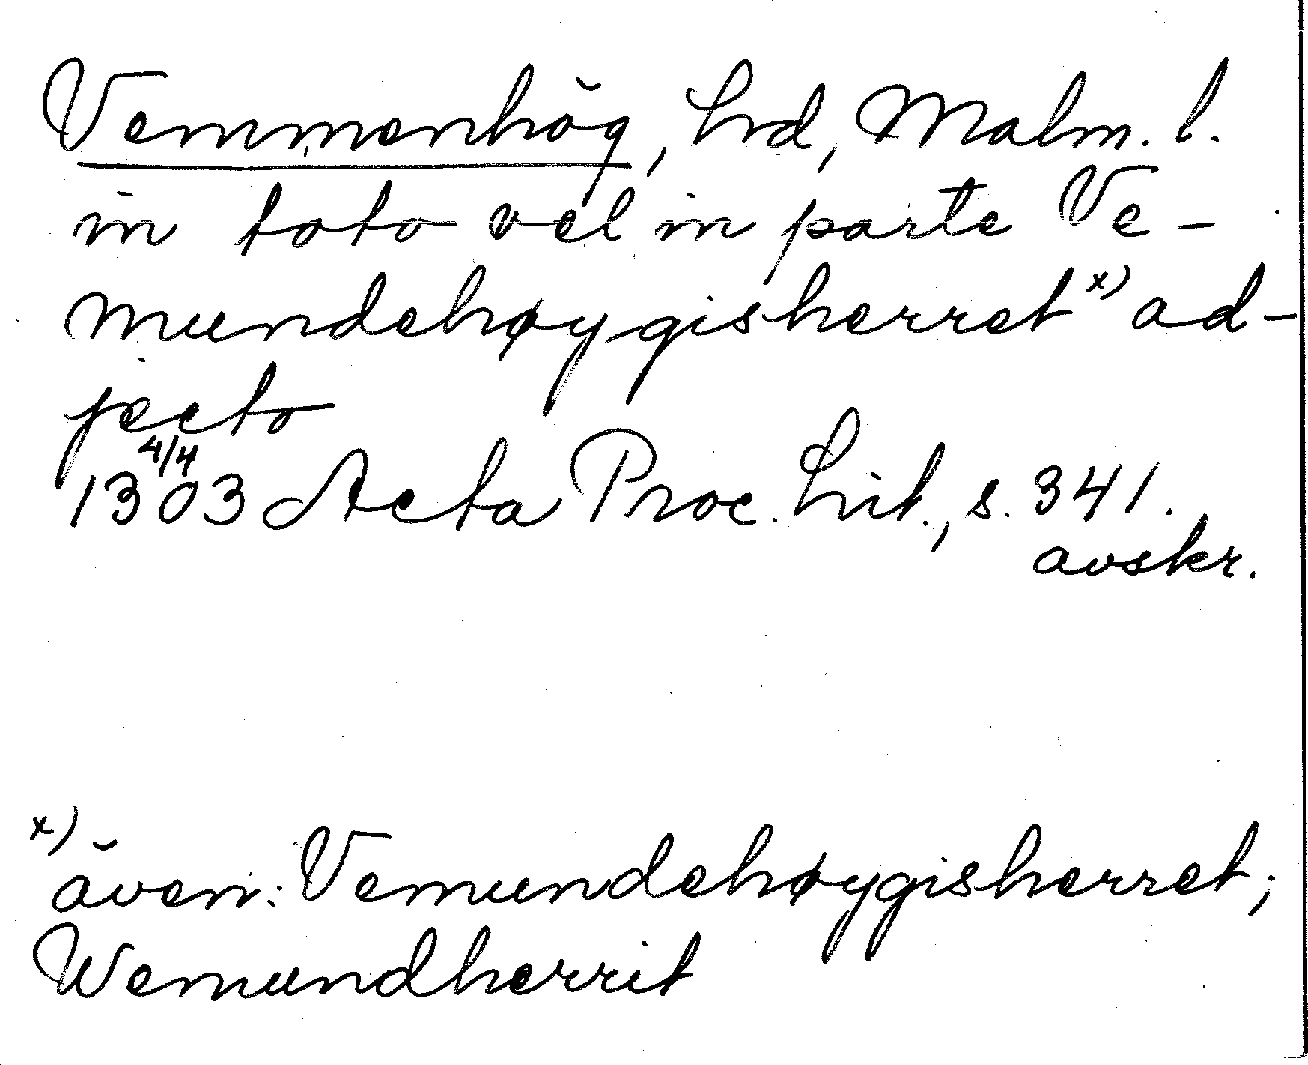 Vemmenhög, hrd, Malm. l.
in toto vel in parte Ve-
mundehøygisherret x) ad-
jecto
4/4
1303 Acta Proc. Lit., s. 341.
avskr.
x)
även: Vemundehøygisherret;
Wemundherrit